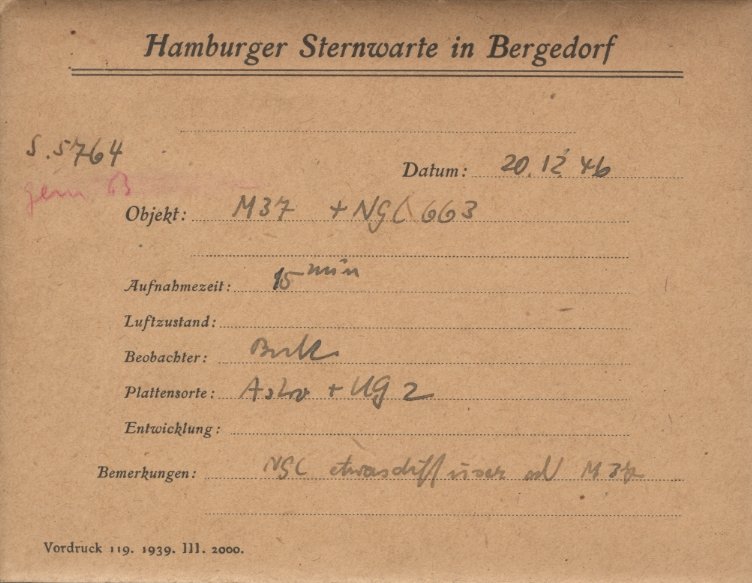 Hamburger Sternwarte in Bergedorf
S. 5764
Datum: 20.12.46
gem 63
Objekt: M37 + NGC 663
Aufnahmezeit: 15 min
Luftzustand:
Beobachter:
Plattensorte: Astro + UG 2
Entwicklung:
Bemerkungen: NGC etwas diffuser als M 37
Vordruck 119. 1939. III. 2000.